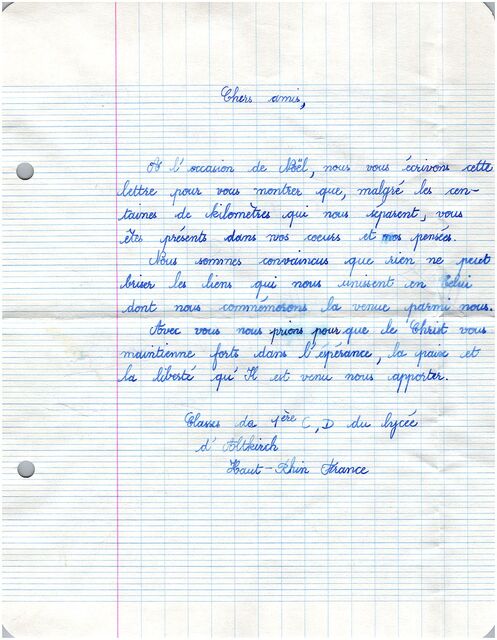 Chers amis,
A l'occasion de Noël, nous vous écrivons cette
lettre pour vous montrer que, malgré les cen-
taines de kilomètres qui nous séparent, vous
êtes présents dans nos coeurs et nos pensées.
Nous sommes convaincus que rien ne peut
briser les liens qui nous unissent en Celui
dont nous commémorons la venue parmi nous.
Avec vous nous prions pour que le Christ vous
maintienne forts dans l'espérance, la paix et
la liberté qu'Il est venu nous apporter.
Classes de 1ère C, D du lycée
d'Altkirch
Haut-Rhin France